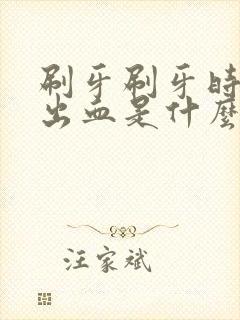 刷牙刷牙时
出血是什麼
汪家斌